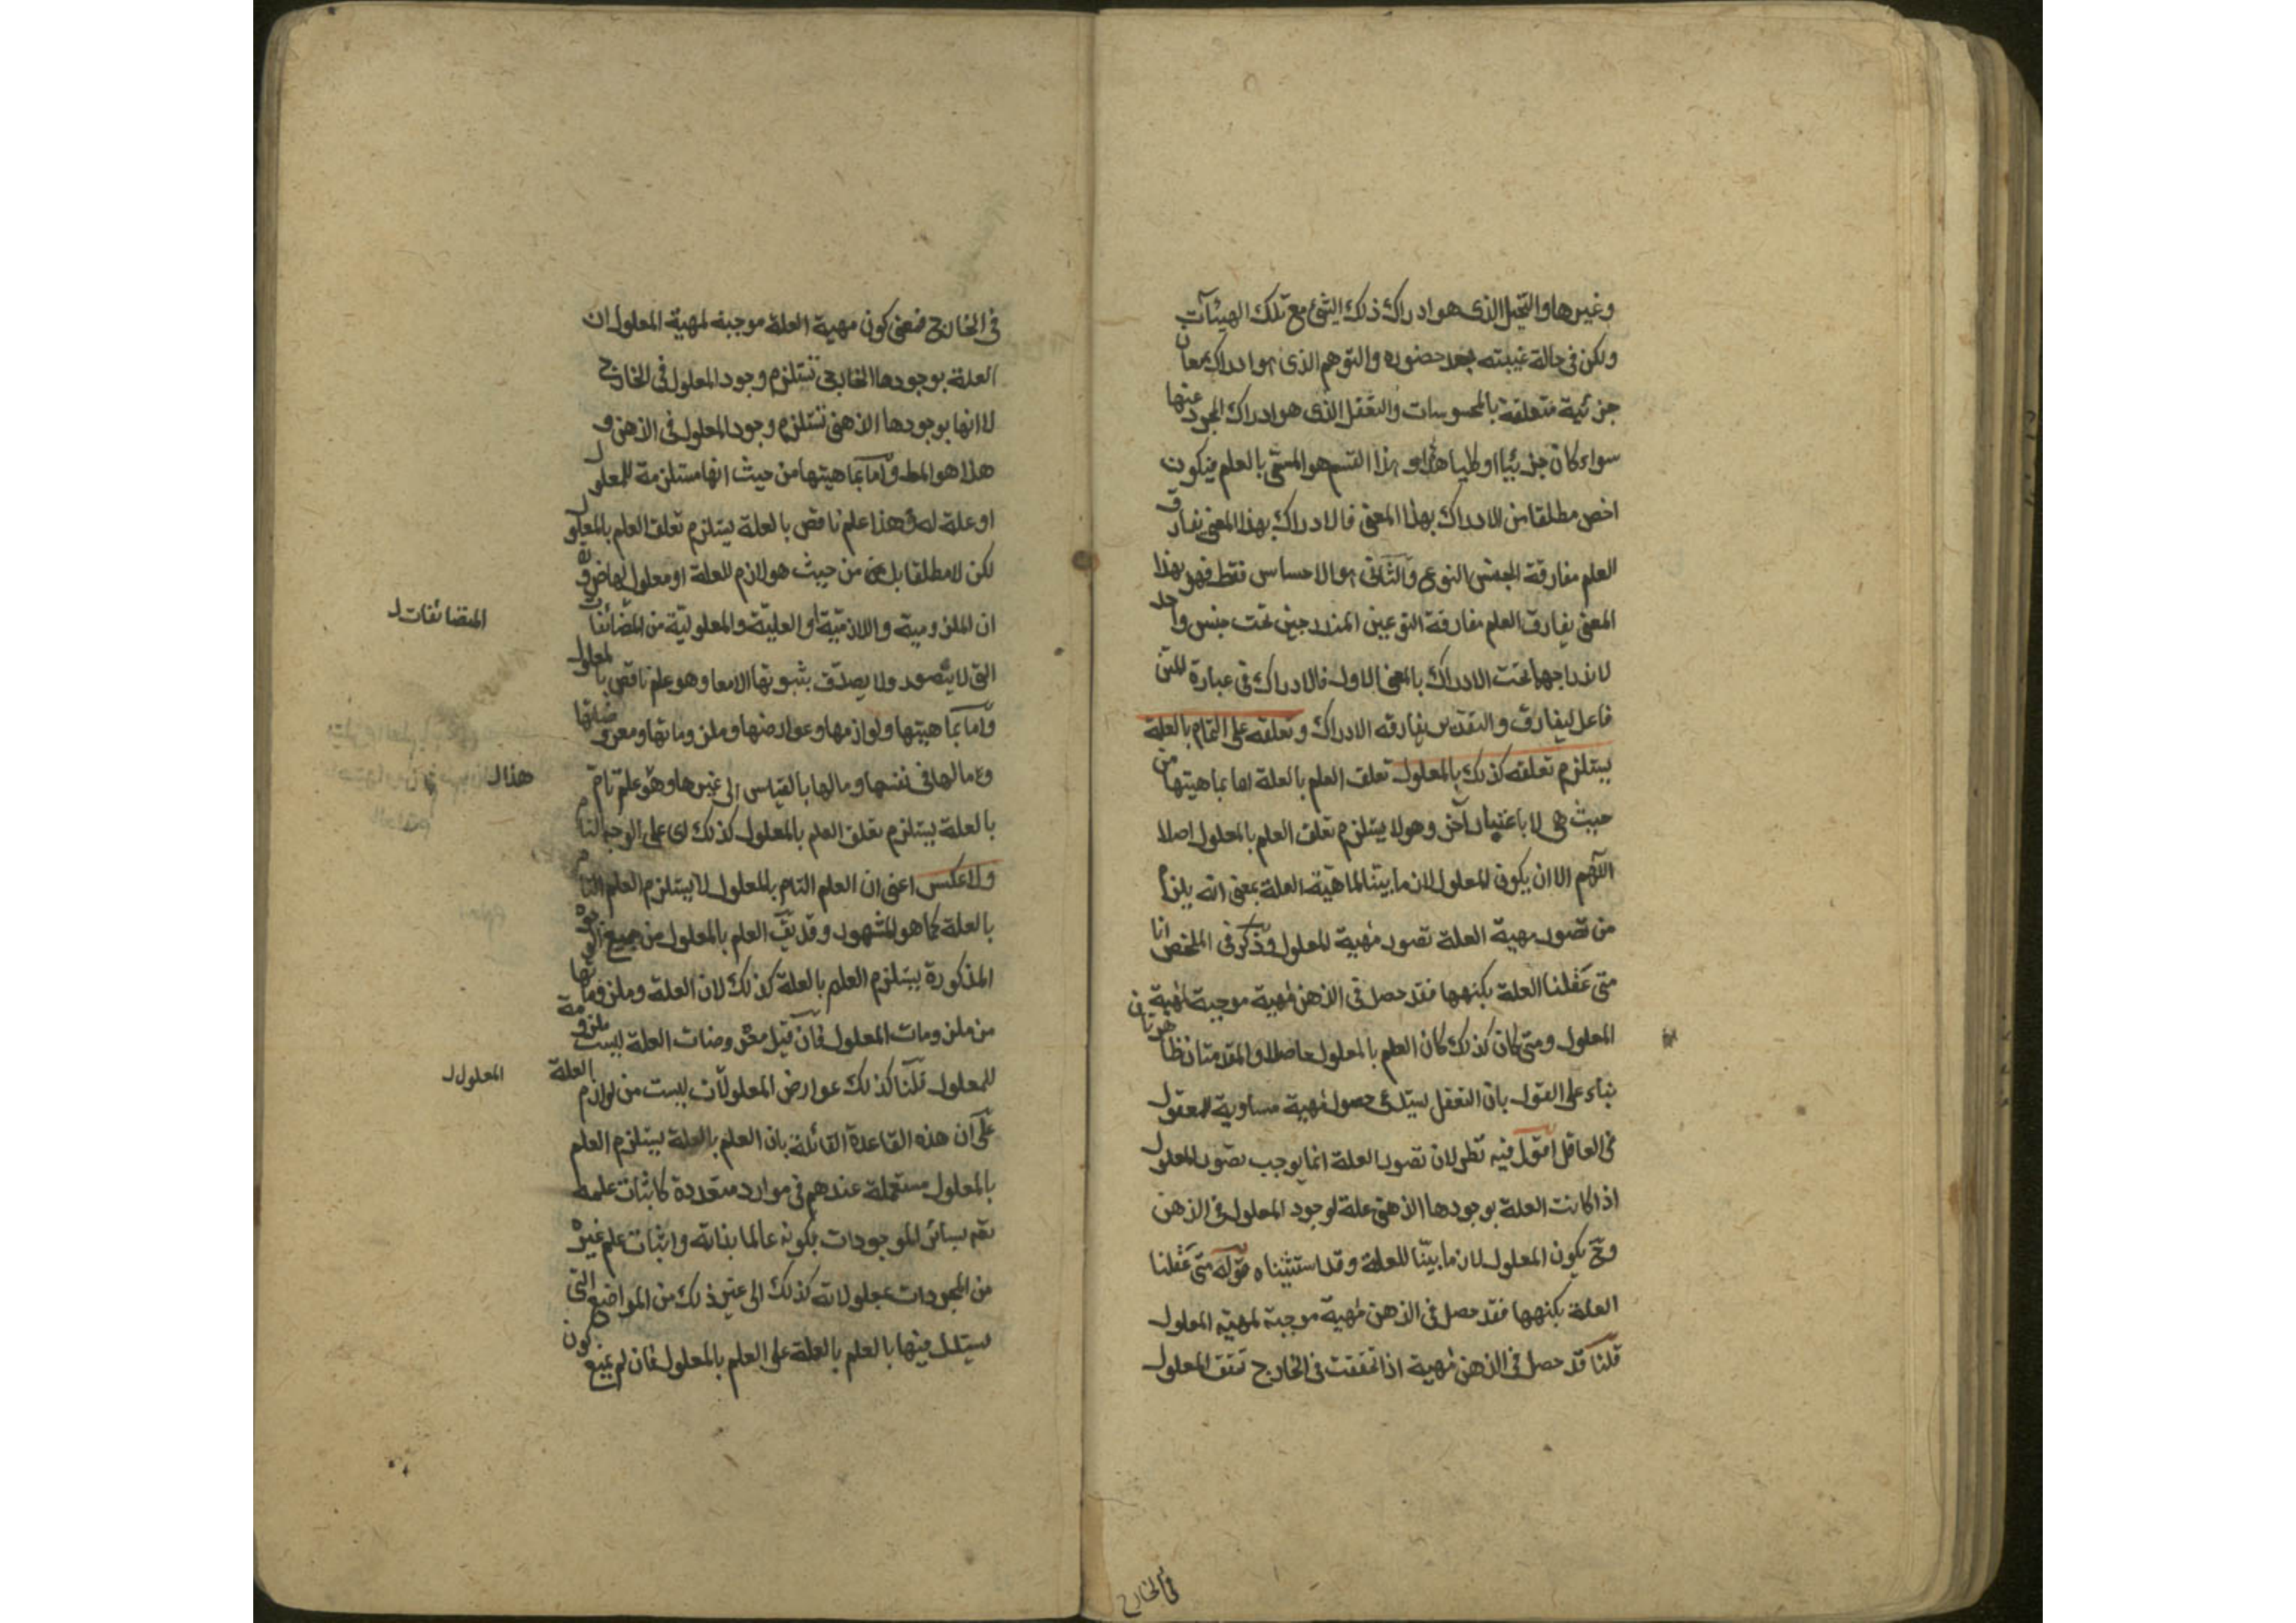 وغيرها والتخيل الذى هو ادراك ذلك الشئ مع تلك الهيئات
ولكن فى حالة غيبته بعد حضوره والتوهم الذى هو ادراك بمعان
جزئية متعلقة بالمحسوسات والتعقل الذى هو ادراك المجرد عنها
سواء كان جزئيا او كليا وهذا القسم هو المسمى بالعلم فيكون
اخص مطلقا من الادراك بهذا المعنى فالادراك بهذا المعنى يفارق
العلم مفارقة الجنس النوع والثانى هو الاحساس فقط فهو بهذا
المعنى يفارق العلم مفارقة النوعين المندرجين تحت جنس واحد
لاندراجهما تحت الادراك بالمعنى الاول فالادراك فى عبارة المتن
فاعل ليفارق والتقدير يفارقه الادراك وتعلقه على التمام بالعلة
يستلزم تعلقه كذلك بالمعلول تعلق العلم بالعلة اما بماهيتها من
حيث هى لا باعتبار آخر وهو لا يستلزم تعلق العلم بالمعلول اصلا
اللهم الا ان يكون المعلول لازما بينا لماهية العلة بمعنى انه يلزم
من تصور مهية العلة تصور مهية المعلول وذكر فى الملخص انا
متى عقلنا العلة بكنهها فقد حصل فى الذهن مهية موجبة لمهية
المعلول ومتى كان كذلك كان العلم بالمعلول حاصلا والمقدمتان ظاهرتان
بناء على القول بان التعقل يستدعى حصول مهية مساوية للمعقول
فى العاقل اقول فيه نظر لان تصور العلة انما يوجب تصور المعلول
اذا كانت العلة بوجودها الذهنى علة لوجود المعلول فى الذهن
وح يكون المعلول لازما بينا للعلة وقد استثنيناه قوله متى عقلنا
العلة بكنهها فقد حصل فى الذهن مهية موجبة لمهية المعلول
قلنا قد حصل فى الذهن مهية اذا تحققت فى الخارج تحقق المعلول
فى الخارج
فى الخارج فمعنى كون مهية العلة موجبة لمهية المعلول ان
العلة بوجودها الخارجى تستلزم وجود المعلول فى الخارج
لا انها بوجودها الذهنى تستلزم وجود المعلول فى الذهن و
هذا هو المط واما بماهيتها من حيث انها مستلزمة للمعلول
او علة له وهذا علم ناقص بالعلة يستلزم تعلق العلم بالمعلول
لكن لا مطلقا بل من حيث هو لازم للعلة او معلول لها ضرورة
ان الملزومية واللازمية او العلية والمعلولية من المضائفات
المتضائفات
التى لا يتصور ولا يصدق بثبوتها الا معا وهو علم ناقص بالمعلول
واما بماهيتها ولوازمها وعوارضها وملزوماتها ومعروضاتها
وما لها فى نفسها وما لها بالقياس الى غيرها وهو علم تام
هذا
بالعلة يستلزم تعلق العلم بالمعلول كذلك اى على الوجه التام
ولا عكس اعنى ان العلم التام بالمعلول لا يستلزم العلم التام
بالعلة كما هو المشهور وقد يق العلم بالمعلول من جميع الوجوه
المذكورة يستلزم العلم بالعلة كذلك لان العلة وملزوماتها
من ملزومات المعلول فان قيل معروضات العلة ليست ملزومة
للمعلول قلنا كذلك عوارض المعلولات ليست من لوازم العلة
المعلول
على ان هذه القاعدة القائلة بان العلم بالعلة يستلزم العلم
بالمعلول مستعملة عندهم فى موارد متعددة كاثبات علمه
تعم بسائر الموجودات بكونه عالما بذاته واثبات علم غيره
من المجردات بمعلولاته كذلك الى غير ذلك من المواضع التى
يستدل فيها بالعلم بالعلة على العلم بالمعلول فان لم يمنع كون